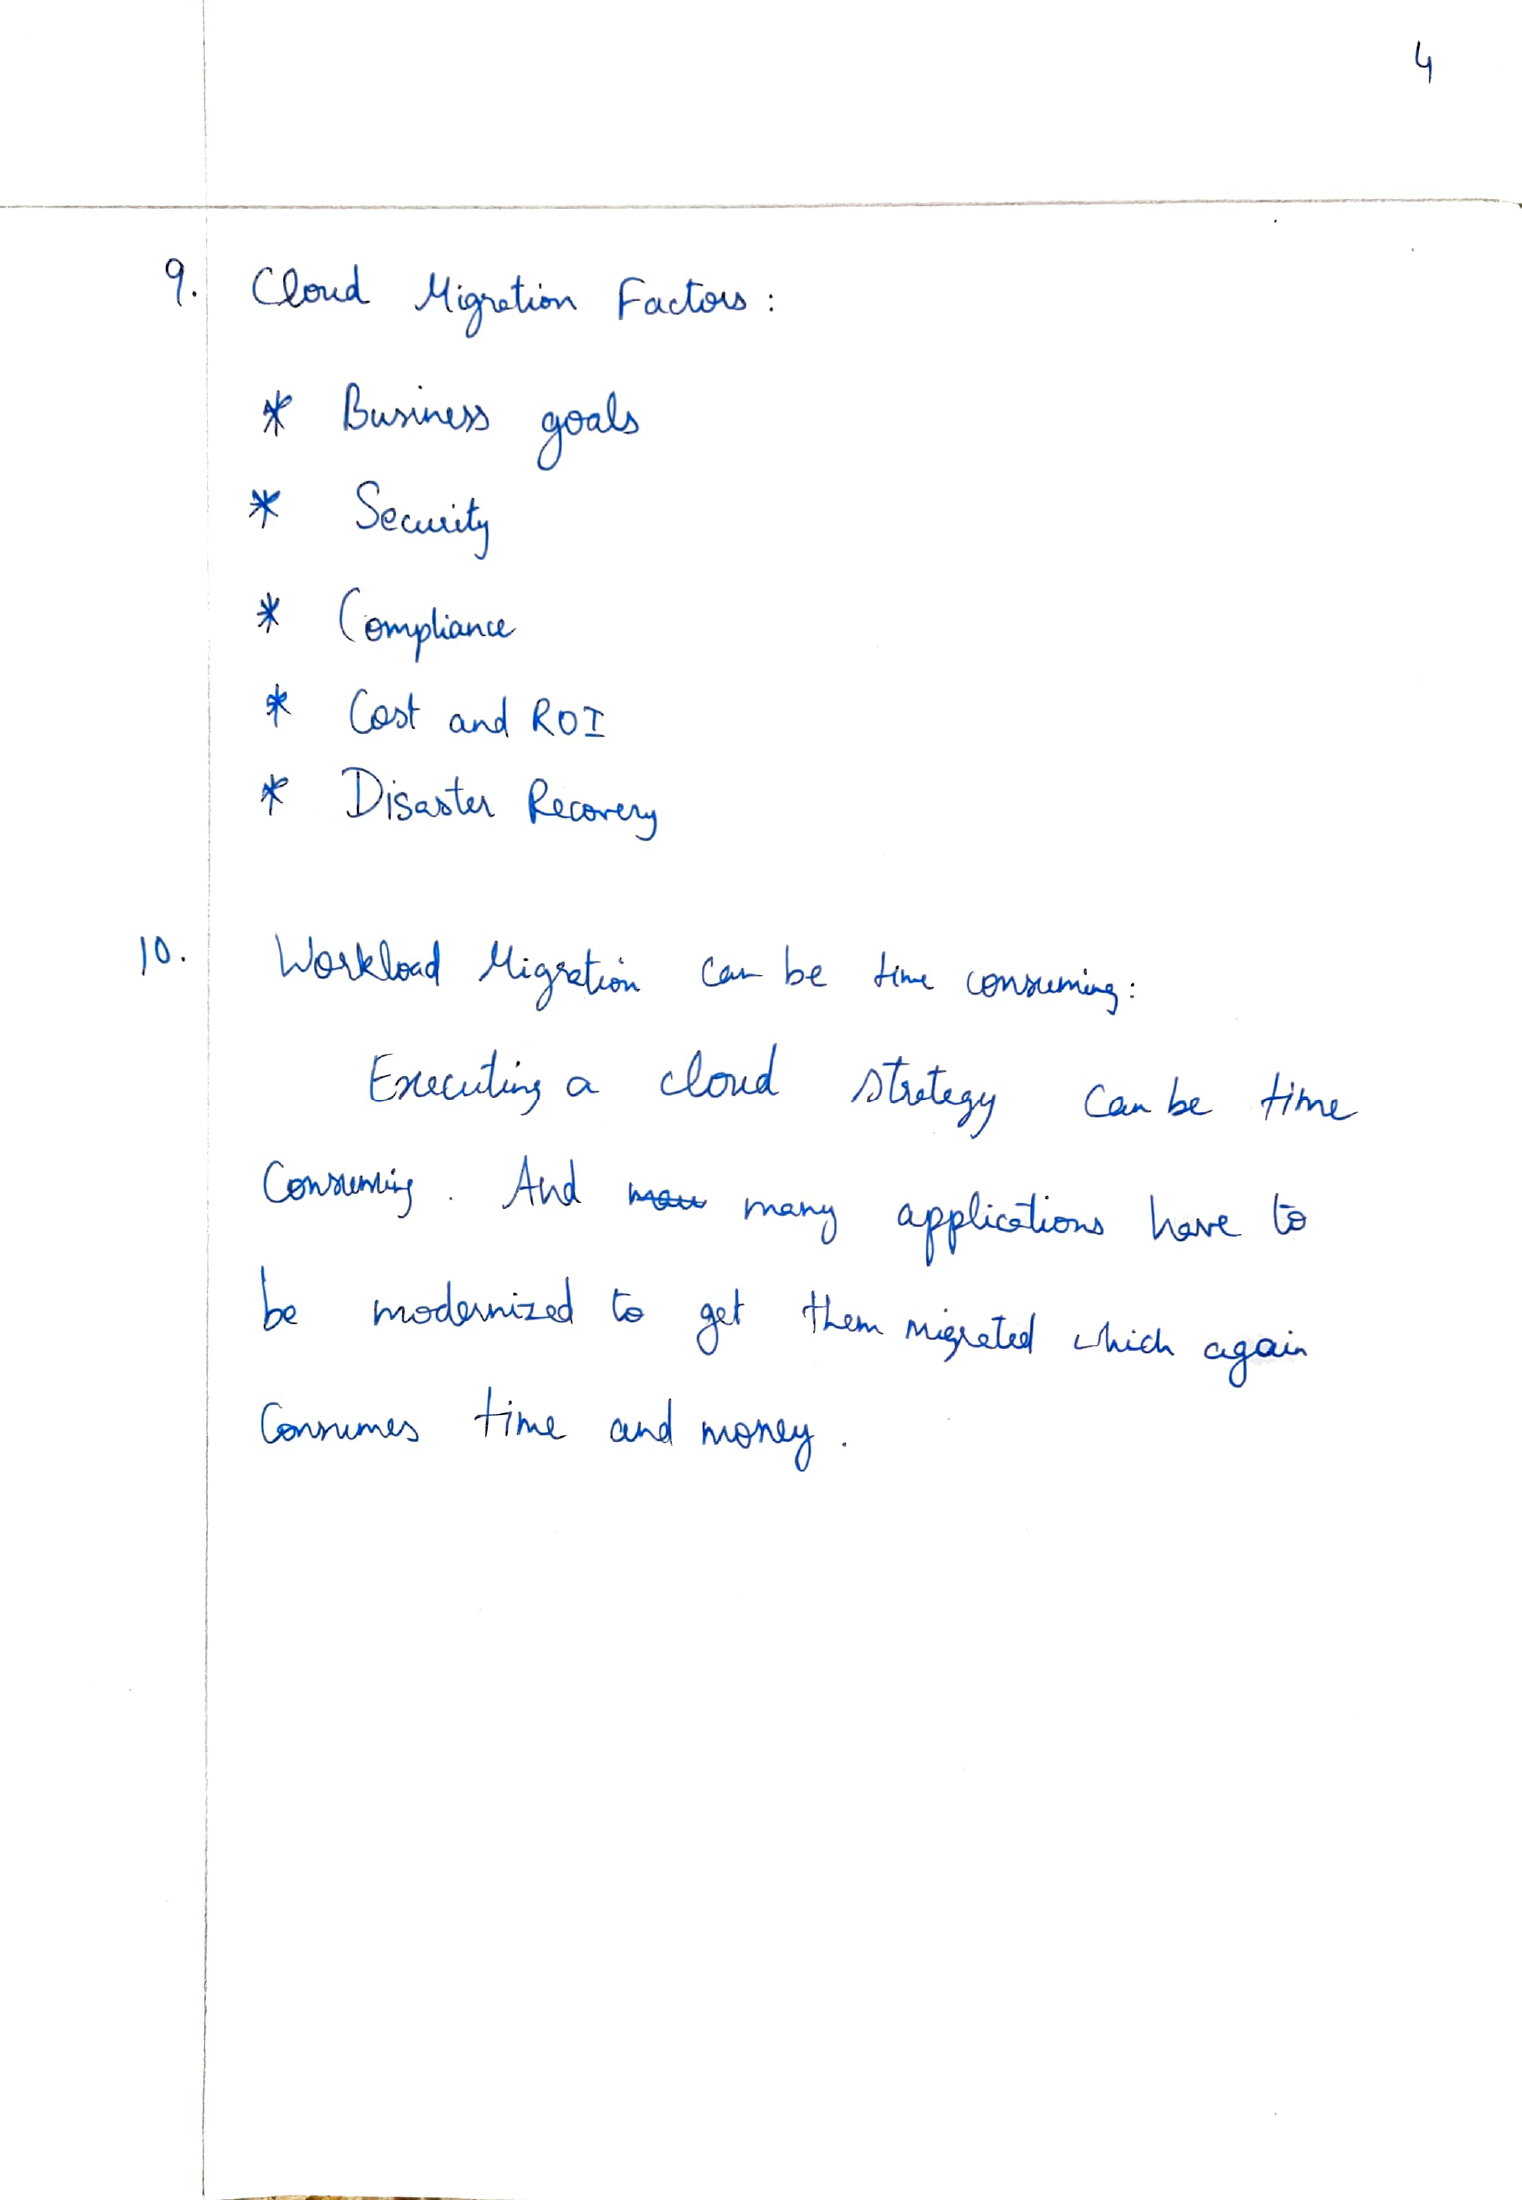 4
9. Cloud Migration Factors :
* Business goals
* Security
* Compliance
* Cost and ROI
* Disaster Recovery
10. Workload Migration can be time consuming:
Executing a cloud strategy can be time
Consuming. And many applications have to
be modernized to get them migrated which again
Consumes time and money.